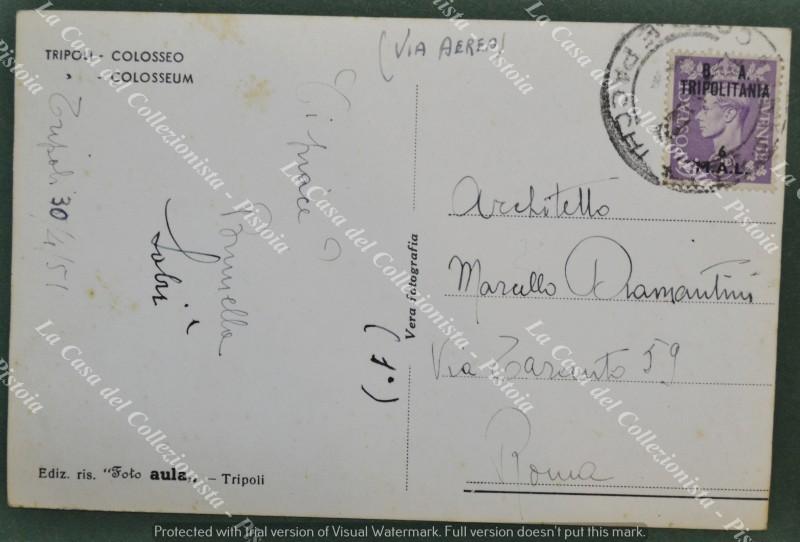 TRIPOLI - COLOSSEO
" - COLOSSEUM
(VIA AEREA)
B. A.
TRIPOLITANIA
6
M.A.L.
Tripoli 30/4/51
Ti piace?
Brunella
Vera fotografia
(1°)
Architetto
Marcello Diamantini
Via Taranto 59
Roma
Ediz. ris. "Foto aula" - Tripoli
La Casa del Collezionista - Pistoia
Protected with trial version of Visual Watermark. Full version doesn't put this mark.